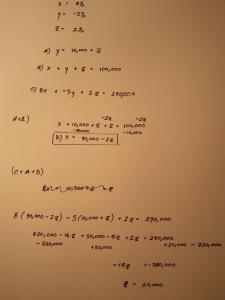 x = 8%
y = -5%
z = 2%
A) y = 10,000 + z
B) x + y + z = 100,000
C) 8x + -5y + 2z = 290,000
A+B) -2z -2z
x + 10,000 + z + z = 100,000
-10,000 -10,000
D) x = 90,000 - 2z
(C + A + D)
8(90,000 - 2z) - 5(10,000 + z) + 2z = 290,000
720,000 - 16z - 50,000 - 5z + 2z = 290,000
-720,000 +50,000 +50,000 - 720,000
-19z = -380,000
z = 20,000